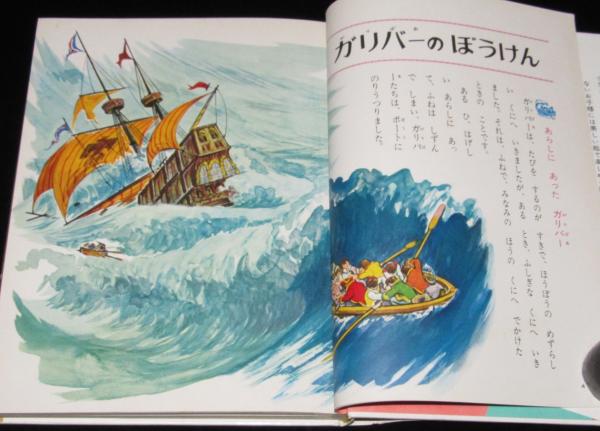 ガリバーのぼうけん
あらしに あった ガリバー
ガリバーは、たびを するのが すきで、ほうぼうの めずらし
い くにへ いきましたが、ある とき、ふしぎな くにへ いき
ました。それは、ふねで、みなみの ほうの くにへ でかけた
ときの ことです。
ある ひ、はげし
い あらしに あっ
て、ふねは しずん
で しまい、ガリバ
ーたちは、ボートに
のりうつりました。